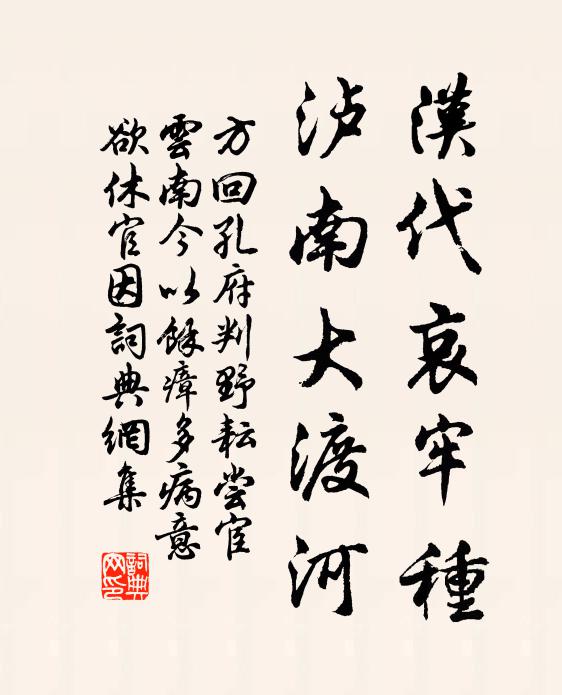 漢代哀牢種
泸南大渡河
方回孔府判野耘尝宦
雲南今以餘瘴多病意
欲休官因詞典網集
詞典网印